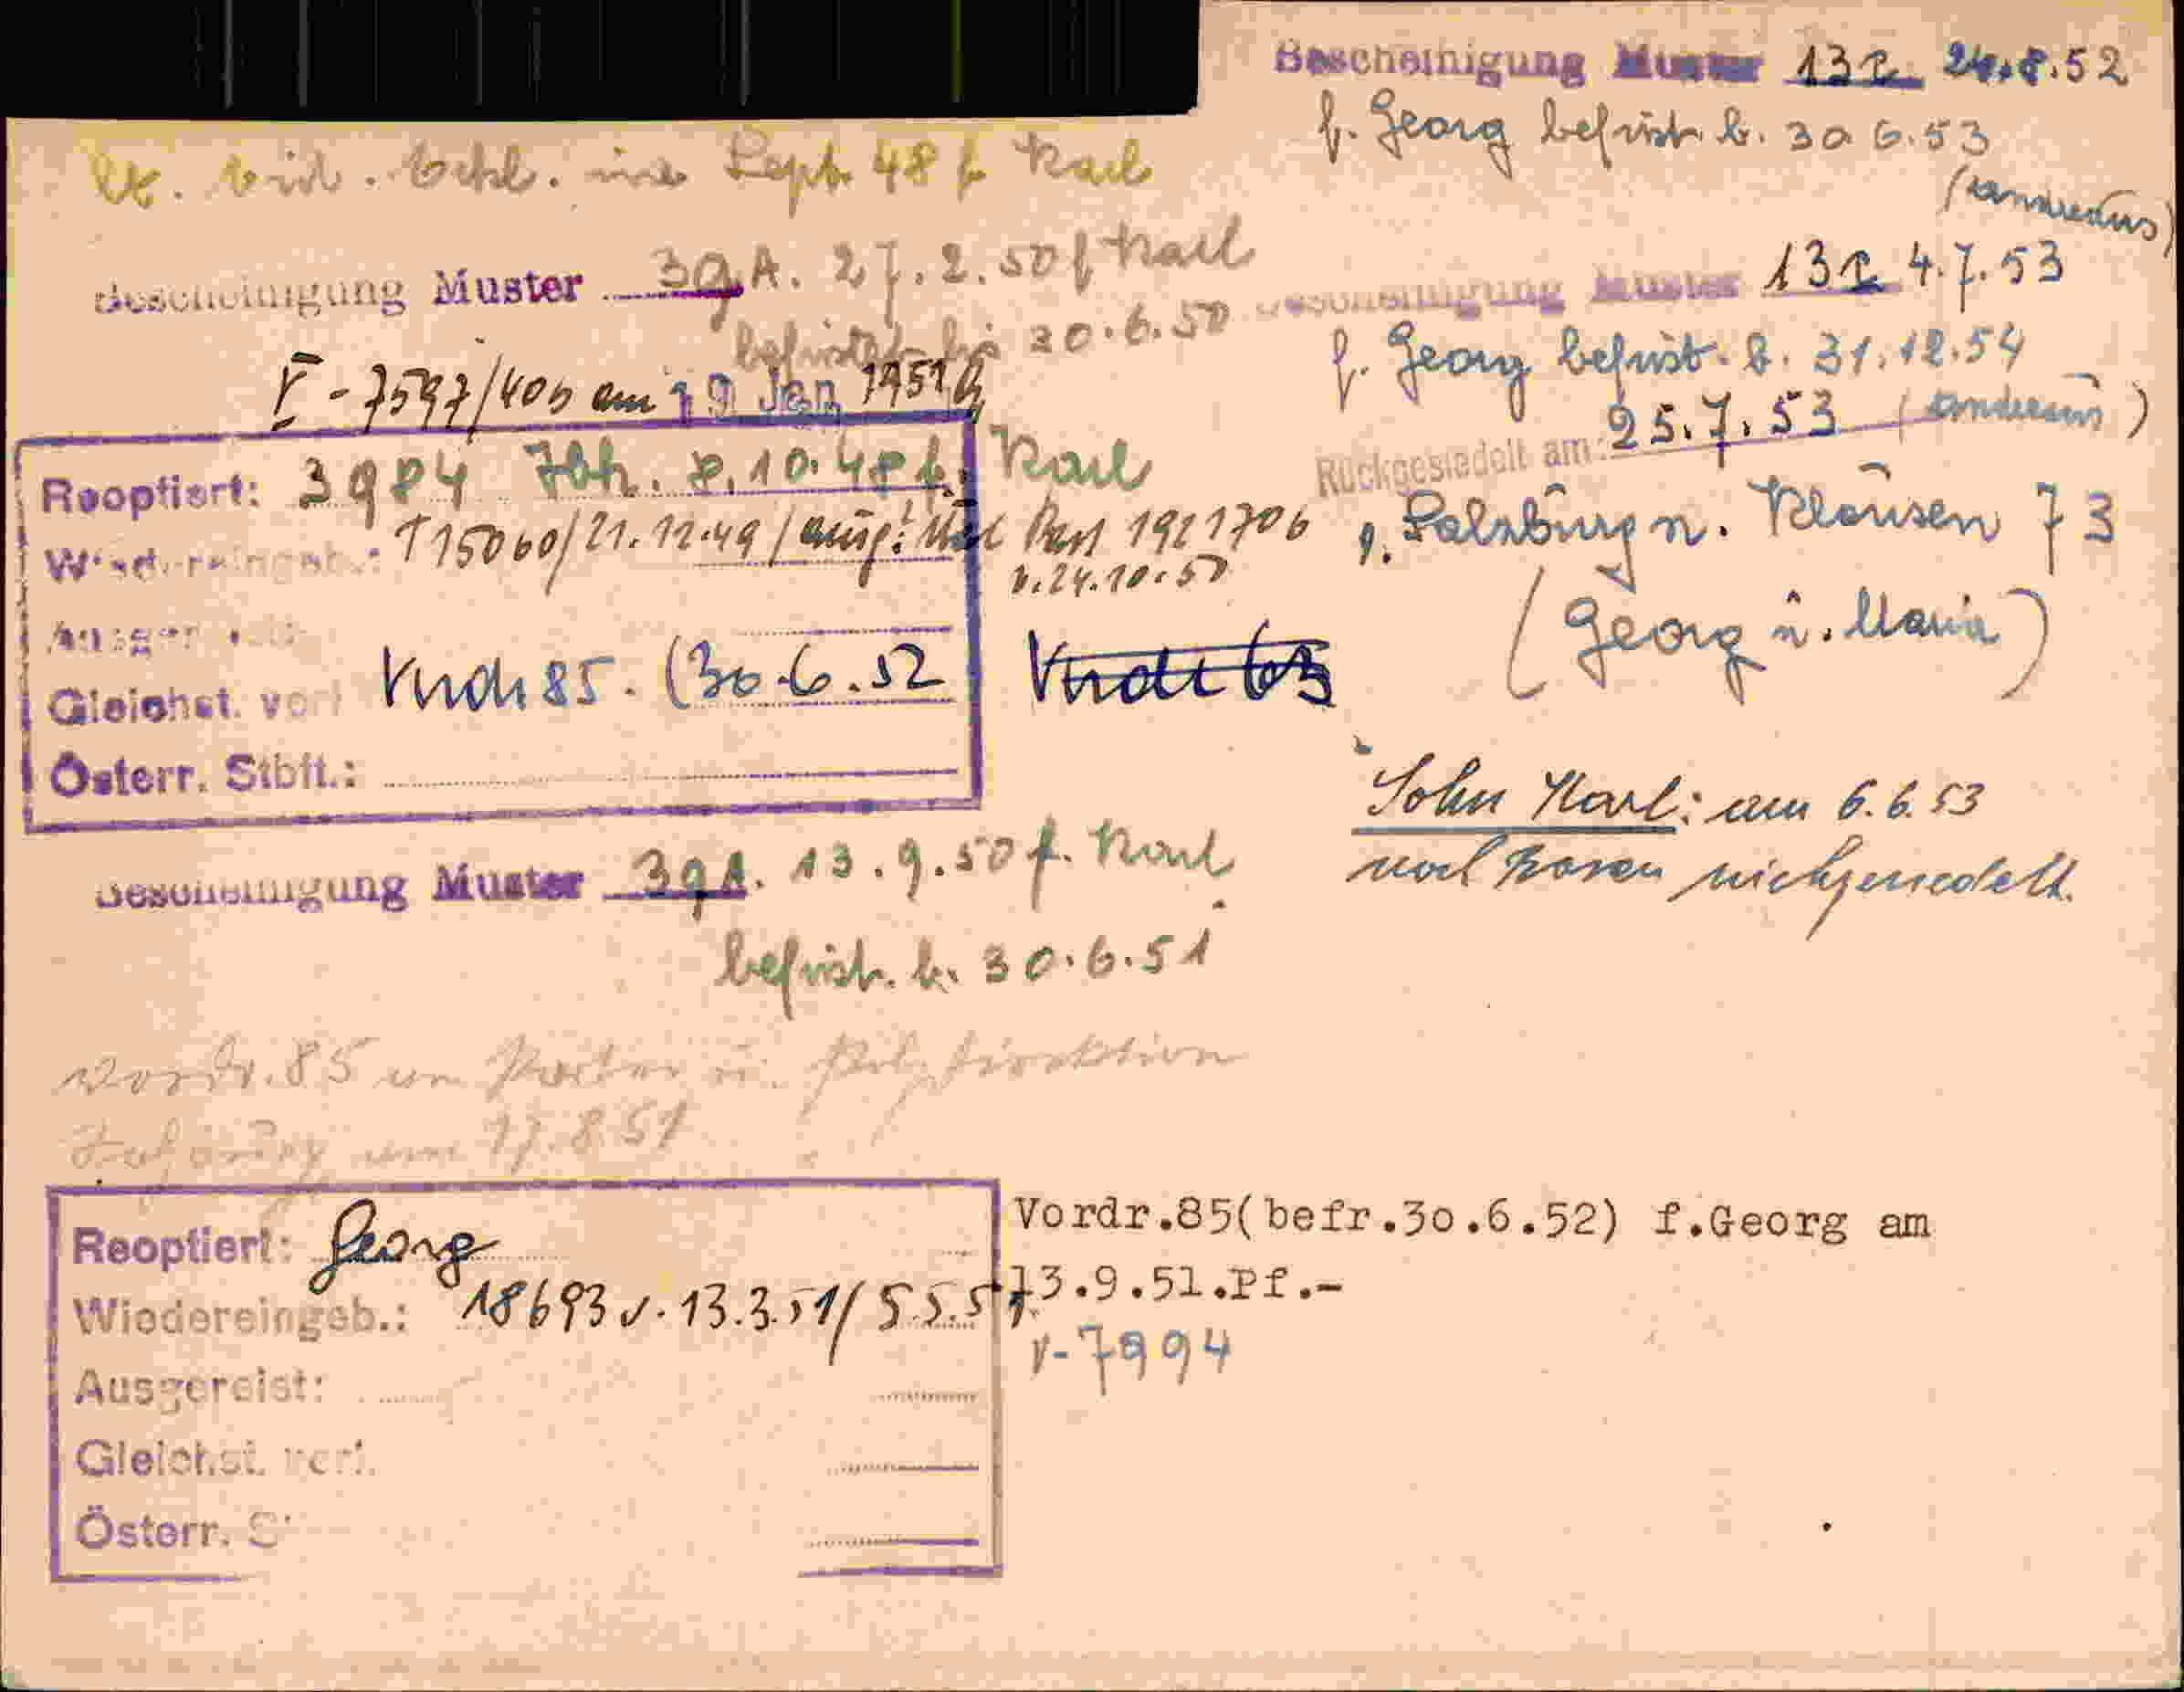 Bescheinigung Muster 132 24.8.52
f. Georg befrist. b. 30 6.53
Sept. 48 f Karl
Bescheinigung Muster 39 A. 27.2.50 f Karl
befristet bis 30.6.50
Bescheinigung Muster 132 4.7.53
f. Georg befrist. b. 31.12.54
V-7597/405 am 19 Jan 1951
Rückgesiedelt am: 25.7.53
n. Klausen 73
(Georg u. Maria)
Reoptiert: 3984 8.10.48 f. Karl
Wiedereingeb.: T 15060/21.12.49/ 1911706
v. 24.10.50
Ausgereist:
Gleichst. verl. 85. (30.6.52
Österr. Stbft.:
Sohn Karl: am 6.6.53
nach Bozen rückgesiedelt.
Bescheinigung Muster 39A. 13.9.50 f. Karl
befrist. b. 30.6.51
Vordr. 85 an
am 17.8.51
Reoptiert: Georg
Wiedereingeb.: 18693 v. 13.3.51/5.5.51
Ausgereist:
Gleichst. verl.
Österr.
Vordr.85(befr.30.6.52) f.Georg am
13.9.51.Pf.-
V-7994